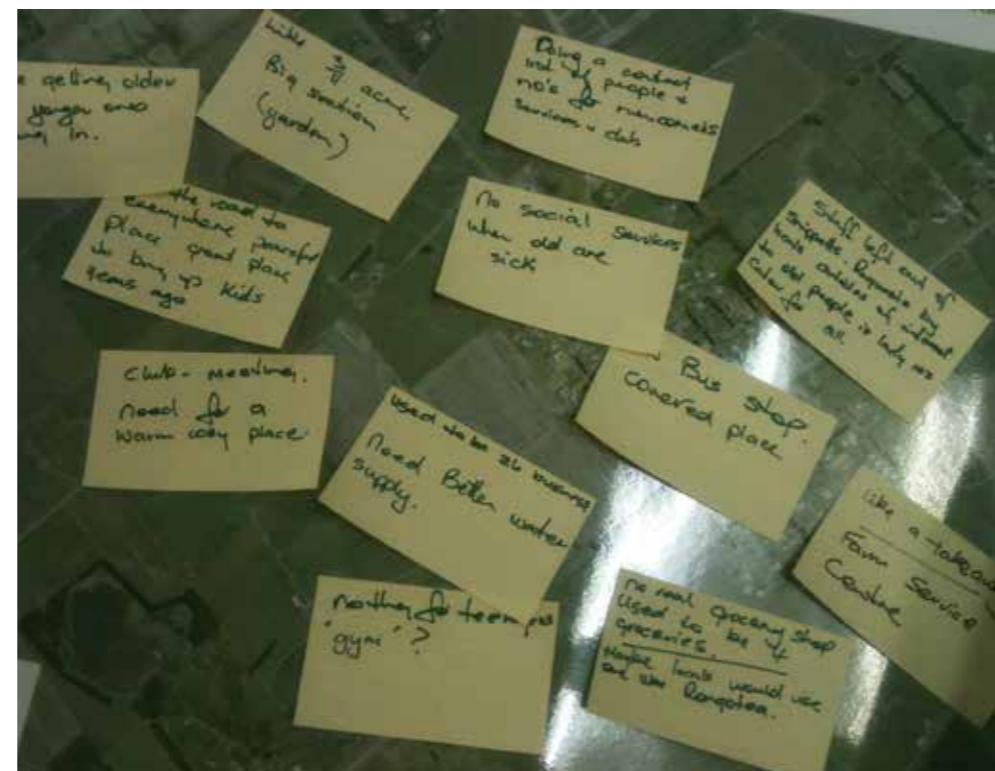 getting older
in.
3/4 acre
Big section
(garden)
Doing a contact
list of people &
no's for newcomers
services & clubs
the road to
everywhere peaceful
place good place
to bring up kids
years ago
No social services
when old are
sick
Stuff left out of
Snippets. Requests by
locals articles of interest
to old people is lady not
Cater for all
Club - meetings.
need for a
warm cosy place.
Used to be 26 business
need Better water
supply.
Bus stop.
covered place
like a takeaway
Farm Service
Centre
nothing for teenagers
'gym' ?
no real grocery shop
Used to be 4
groceries.
Maybe locals would use
one like Rongotea.